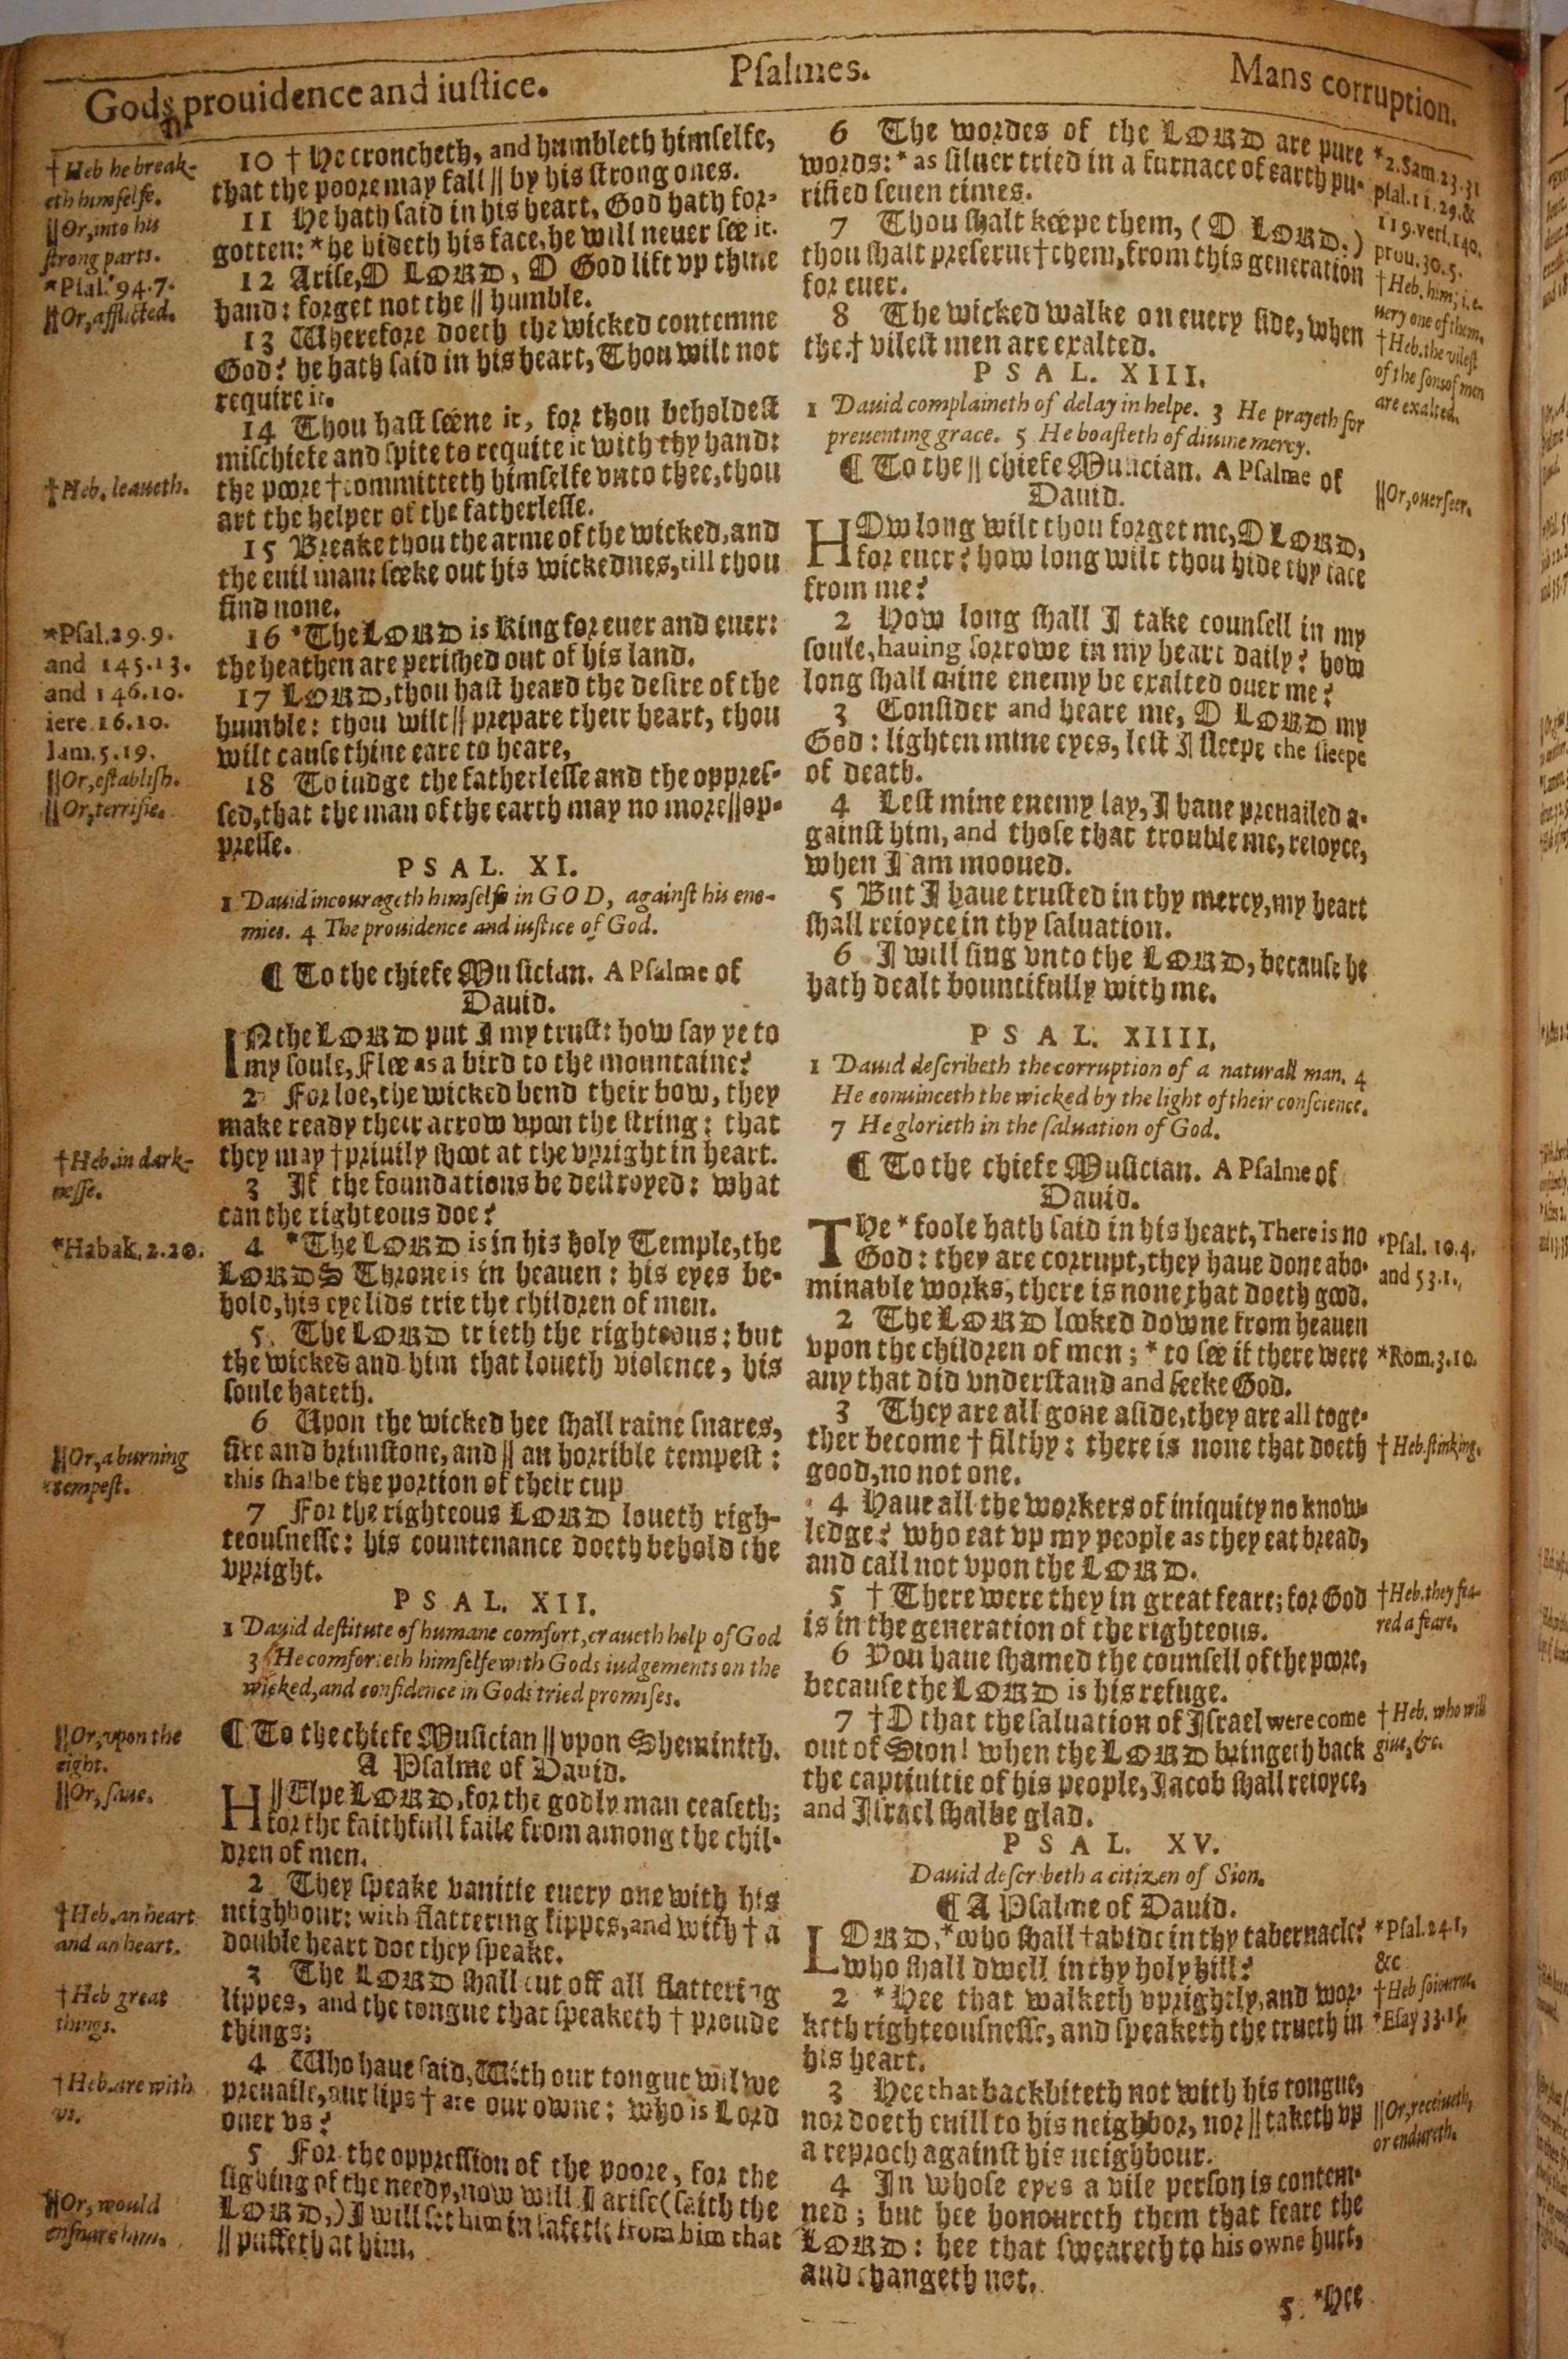 Gods prouidence and iustice.
Psalmes.
Mans corruption.
†Heb he break-
eth himselfe.
||Or, into his
strong parts.
*Psal. 94.7.
||Or, afflicted.
‡Heb. leaueth.
*Psal. 29.9.
and 145.13.
and 146.10.
iere. 16.10.
lam. 5.19.
||Or, establish.
||Or, terrifie.
†Heb. in dark-
nesse.
*Habak. 2.20.
||Or, a burning
tempest.
||Or, vpon the
eight.
||Or, saue.
‡Heb. an heart
and an heart.
†Heb great
things.
†Heb. are with
vs.
||Or, would
ensnare him.
10 † He croucheth, and humbleth himselfe,
that the poore may fall || by his strong ones.
11 He hath said in his heart, God hath for-
gotten: * he hideth his face, he will neuer see it.
12 Arise, O LORD, O God lift vp thine
hand: forget not the || humble.
13 Wherefore doeth the wicked contemne
God? he hath said in his heart, Thou wilt not
require it.
14 Thou hast seene it, for thou beholdest
mischiefe and spite to requite it with thy hand:
the poore † committeth himselfe vnto thee, thou
art the helper of the fatherlesse.
15 Breake thou the arme of the wicked, and
the euil man: seeke out his wickednes, till thou
find none.
16 *The LORD is King for euer and euer:
the heathen are perished out of his land.
17 LORD, thou hast heard the desire of the
humble: thou wilt || prepare their heart, thou
wilt cause thine eare to heare,
18 To iudge the fatherlesse and the oppres-
sed, that the man of the earth may no more || op-
presse.
PSAL. XI.
1 Dauid incourageth himselfe in GOD, against his ene-
mies. 4 The prouidence and iustice of God.
¶ To the chiefe Musician. A Psalme of
Dauid.
IN the LORD put I my trust: how say ye to
my soule, Flee as a bird to the mountaine?
2 For loe, the wicked bend their bow, they
make ready their arrow vpon the string: that
they may † priuily shoot at the vpright in heart.
3 If the foundations be destroyed: what
can the righteous doe?
4 *The LORD is in his holy Temple, the
LORDS Throne is in heauen: his eyes be-
hold, his eyelids trie the children of men.
5. The LORD trieth the righteous: but
the wicked and him that loueth violence, his
soule hateth.
6 Upon the wicked hee shall raine snares,
fire and brimstone, and || an horrible tempest:
this shalbe the portion of their cup
7 For the righteous LORD loueth righ-
teousnesse: his countenance doeth behold the
vpright.
PSAL. XII.
1 Dauid destitute of humane comfort, craueth help of God
3 He comforteth himselfe with Gods iudgements on the
wicked, and confidence in Gods tried promises.
¶ To the chiefe Musician || vpon Sheminith.
A Psalme of Dauid.
H||Elpe LORD, for the godly man ceaseth;
for the faithfull faile from among the chil-
dren of men.
2 They speake vanitie euery one with his
neighbour: with flattering lippes, and with † a
double heart doe they speake.
3 The LORD shall cut off all flattering
lippes, and the tongue that speaketh † proude
things;
4 Who haue said, With our tongue wil we
preuaile, our lips † are our owne: who is Lord
ouer vs?
5 For the oppression of the poore, for the
sighing of the needy, now will I arise (saith the
LORD,) I will set him in safetie from him that
|| puffeth at him.
6 The wordes of the LORD are pure
words: * as siluer tried in a furnace of earth pu-
rified seuen times.
7 Thou shalt keepe them, (O LORD,)
thou shalt preserue † them, from this generation
for euer.
8 The wicked walke on euery side, when
the † vilest men are exalted.
PSAL. XIII.
1 Dauid complaineth of delay in helpe. 3 He prayeth for
preuenting grace. 5 He boasteth of diuine mercy.
¶ To the || chiefe Musician. A Psalme of
Dauid.
HOw long wilt thou forget me, O LORD,
for euer? how long wilt thou hide thy face
from me?
2 How long shall I take counsell in my
soule, hauing sorrowe in my heart daily? how
long shall mine enemy be exalted ouer me?
3 Consider and heare me, O LORD my
God: lighten mine eyes, lest I sleepe the sleepe
of death.
4 Lest mine enemy say, I haue preuailed a-
gainst him, and those that trouble me, reioyce,
when I am mooued.
5 But I haue trusted in thy mercy, my heart
shall reioyce in thy saluation.
6 I will sing vnto the LORD, because he
hath dealt bountifully with me.
PSAL. XIIII.
1 Dauid describeth the corruption of a naturall man. 4
He conuinceth the wicked by the light of their conscience.
7 He glorieth in the saluation of God.
¶ To the chiefe Musician. A Psalme of
Dauid.
THe * foole hath said in his heart, There is no
God: they are corrupt, they haue done abo-
minable works, there is none that doeth good.
2 The LORD looked downe from heauen
vpon the children of men; * to see if there were
any that did vnderstand and seeke God.
3 They are all gone aside, they are all toge-
ther become † filthy: there is none that doeth
good, no not one.
4 Haue all the workers of iniquity no know-
ledge? who eat vp my people as they eat bread,
and call not vpon the LORD.
5 † There were they in great feare; for God
is in the generation of the righteous.
6 You haue shamed the counsell of the poore,
because the LORD is his refuge.
7 † O that the saluation of Israel were come
out of Sion! when the LORD bringeth back
the captiuitie of his people, Iacob shall reioyce,
and Israel shalbe glad.
PSAL. XV.
Dauid describeth a citizen of Sion.
¶ A Psalme of Dauid.
LORD, * who shall † abide in thy tabernacle?
who shall dwell in thy holy hill?
2 * Hee that walketh vprightly, and wor-
keth righteousnesse, and speaketh the trueth in
his heart.
3 Hee that backbiteth not with his tongue,
nor doeth euill to his neighbor, nor || taketh vp
a reproch against his neighbour.
4 In whose eyes a vile person is contem-
ned; but hee honoureth them that feare the
LORD: hee that sweareth to his owne hurt,
and changeth not.
5. *Hee
*2. Sam. 23. 31
Psal. 11. 29. &
119. vers. 140.
prou. 30. 5.
†Heb. him; i. e.
uery one of them.
†Heb. the vilest
of the sons of men
are exalted.
||Or, ouerseer.
*Psal. 10. 4.
and 53. 1.
*Rom. 3. 10.
†Heb. stinking.
†Heb. they fea-
red a feare.
†Heb. who will
giue, &c.
*Psal. 24. 1,
&c
†Heb soiourne.
*Esay 33. 15.
||Or, receiueth,
or endureth.